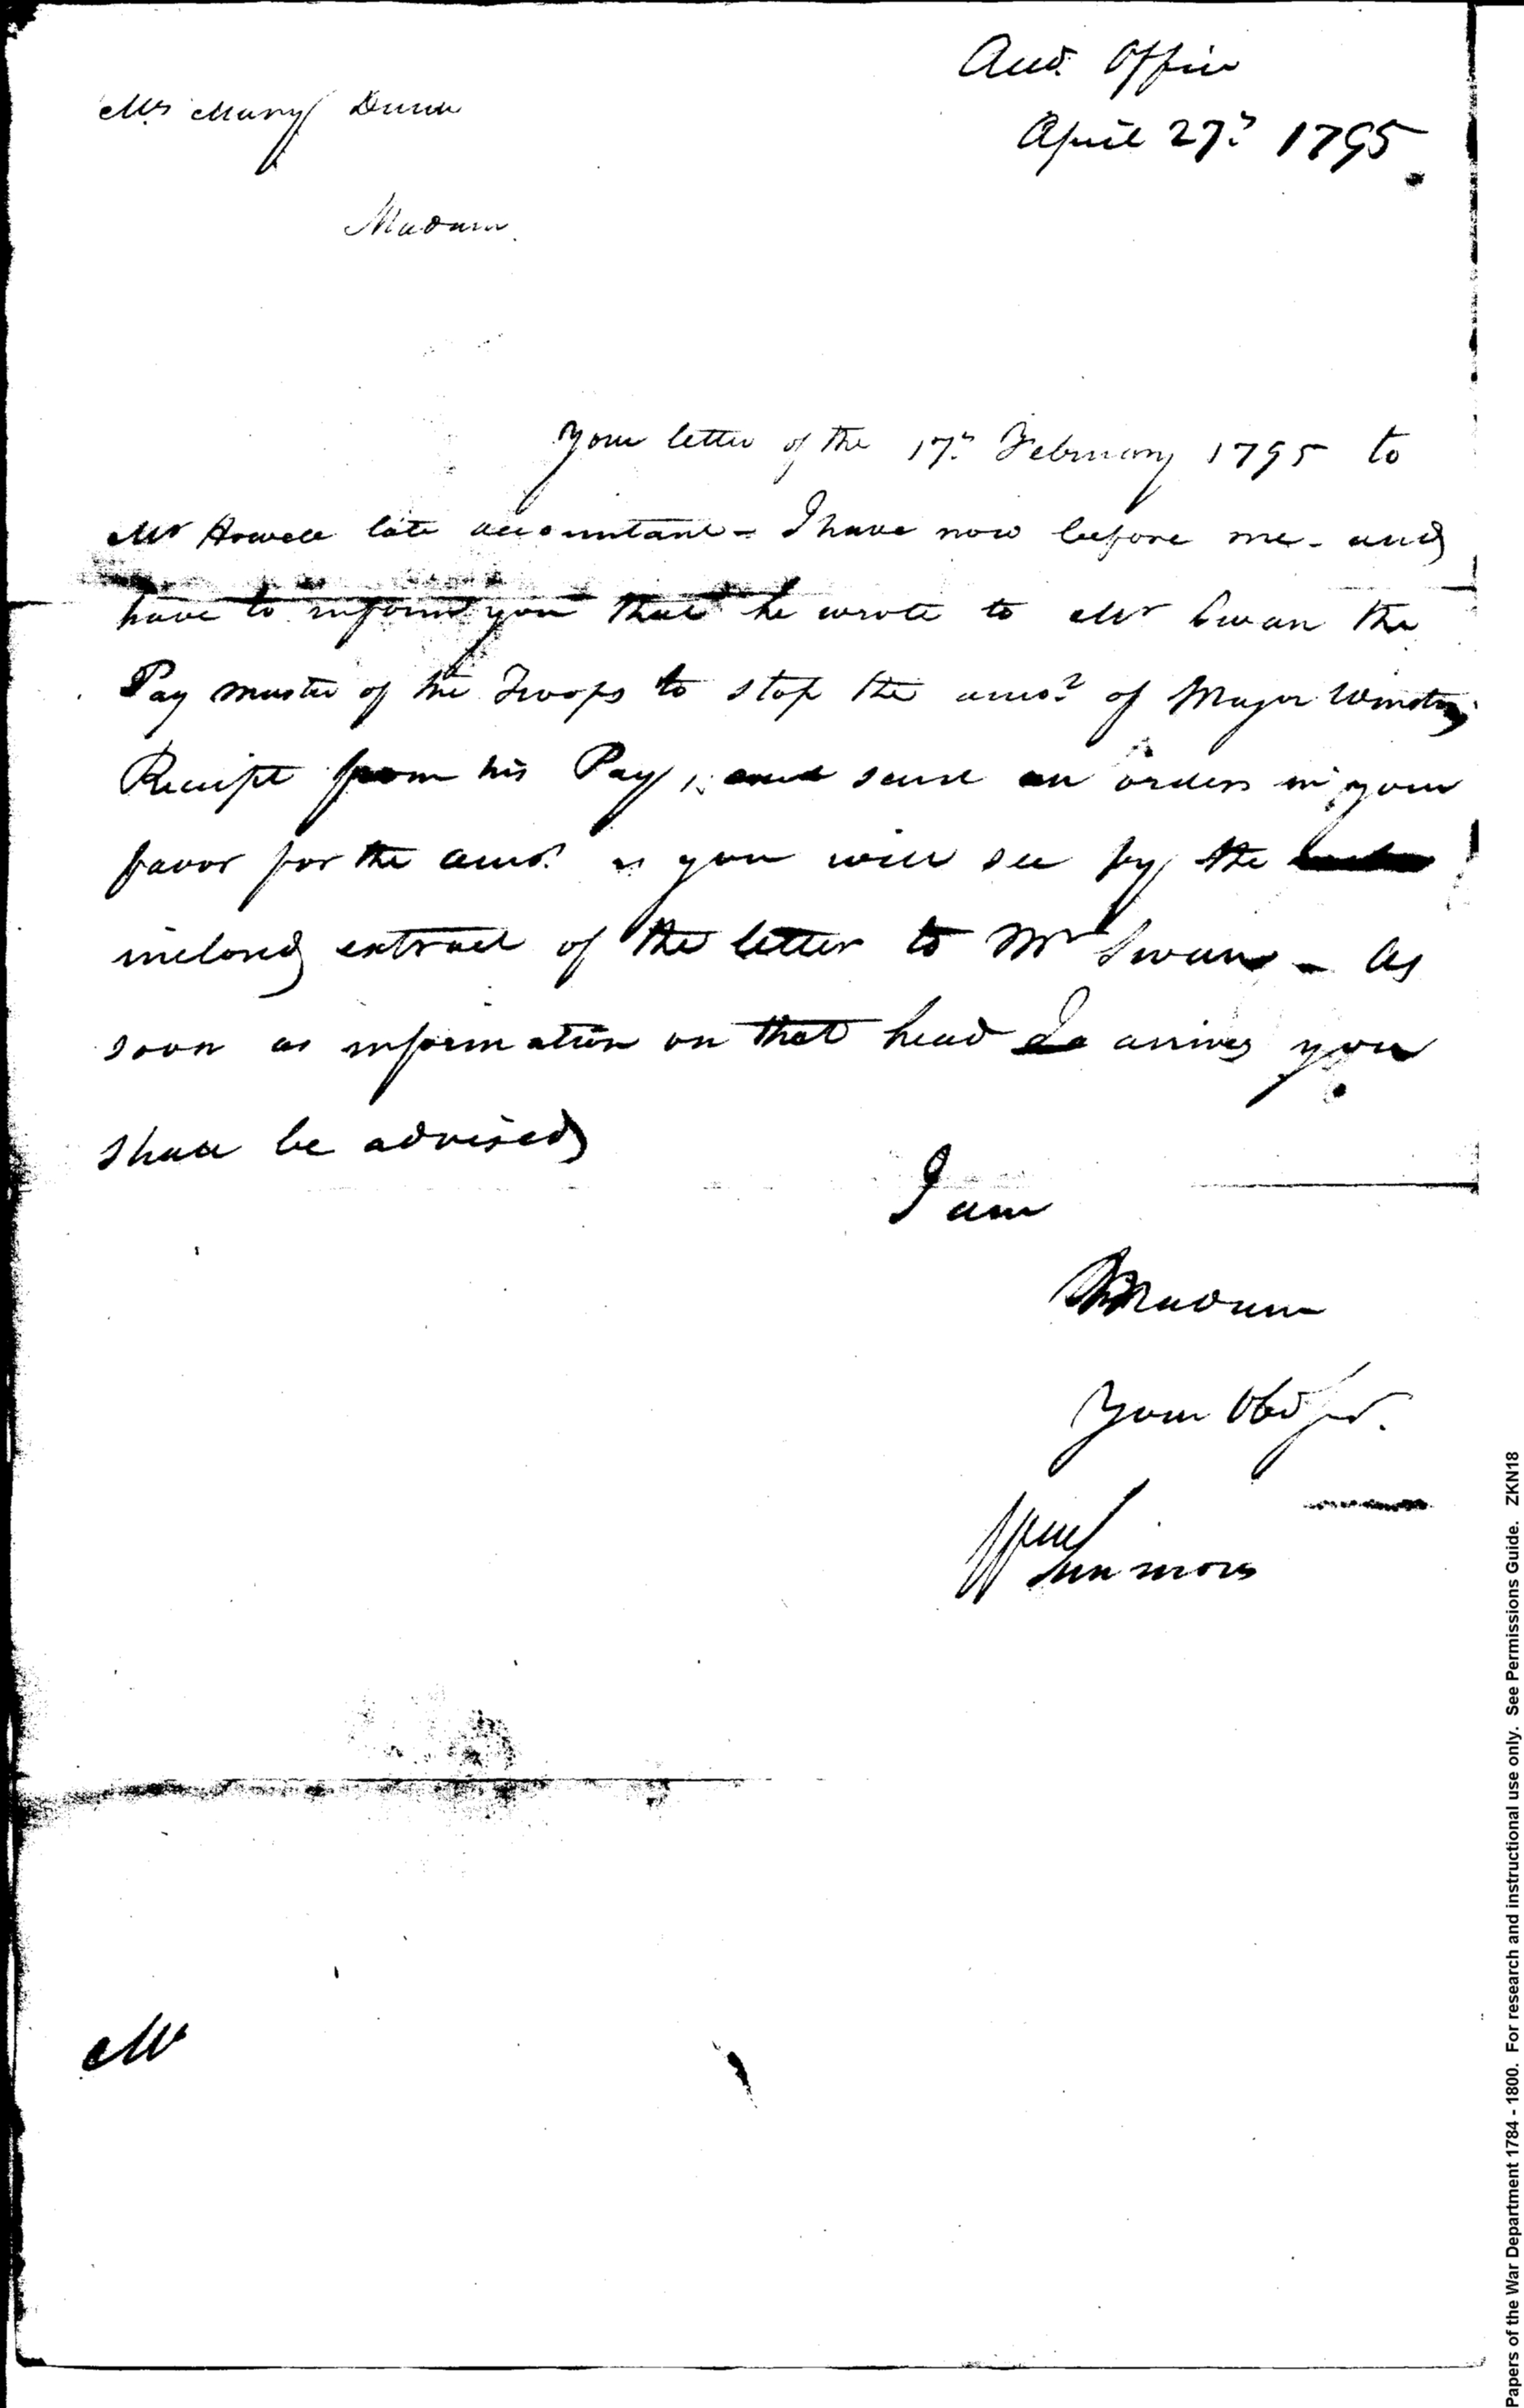 Aud. Office
April 27th 1795.
Mrs Mary Dunn
Madam
Your letter of the 17th February 1795 to
Mr Howell late accountant - I have now before me - and
have to inform you that he wrote to Mr Swan the
Pay master of the Troops to stop the amot of Major Winstons
Receipt from his Pay, and send an orders in your
favor for the amot as you will see by the
inclosed extract of the letter to Mr Swan - As
soon as information on that head arrives you
shall be advised
I am
Madam
Your Obd
Wm Simmons
Mr
Papers of the War Department 1784 - 1800. For research and instructional use only. See Permissions Guide. ZKN18